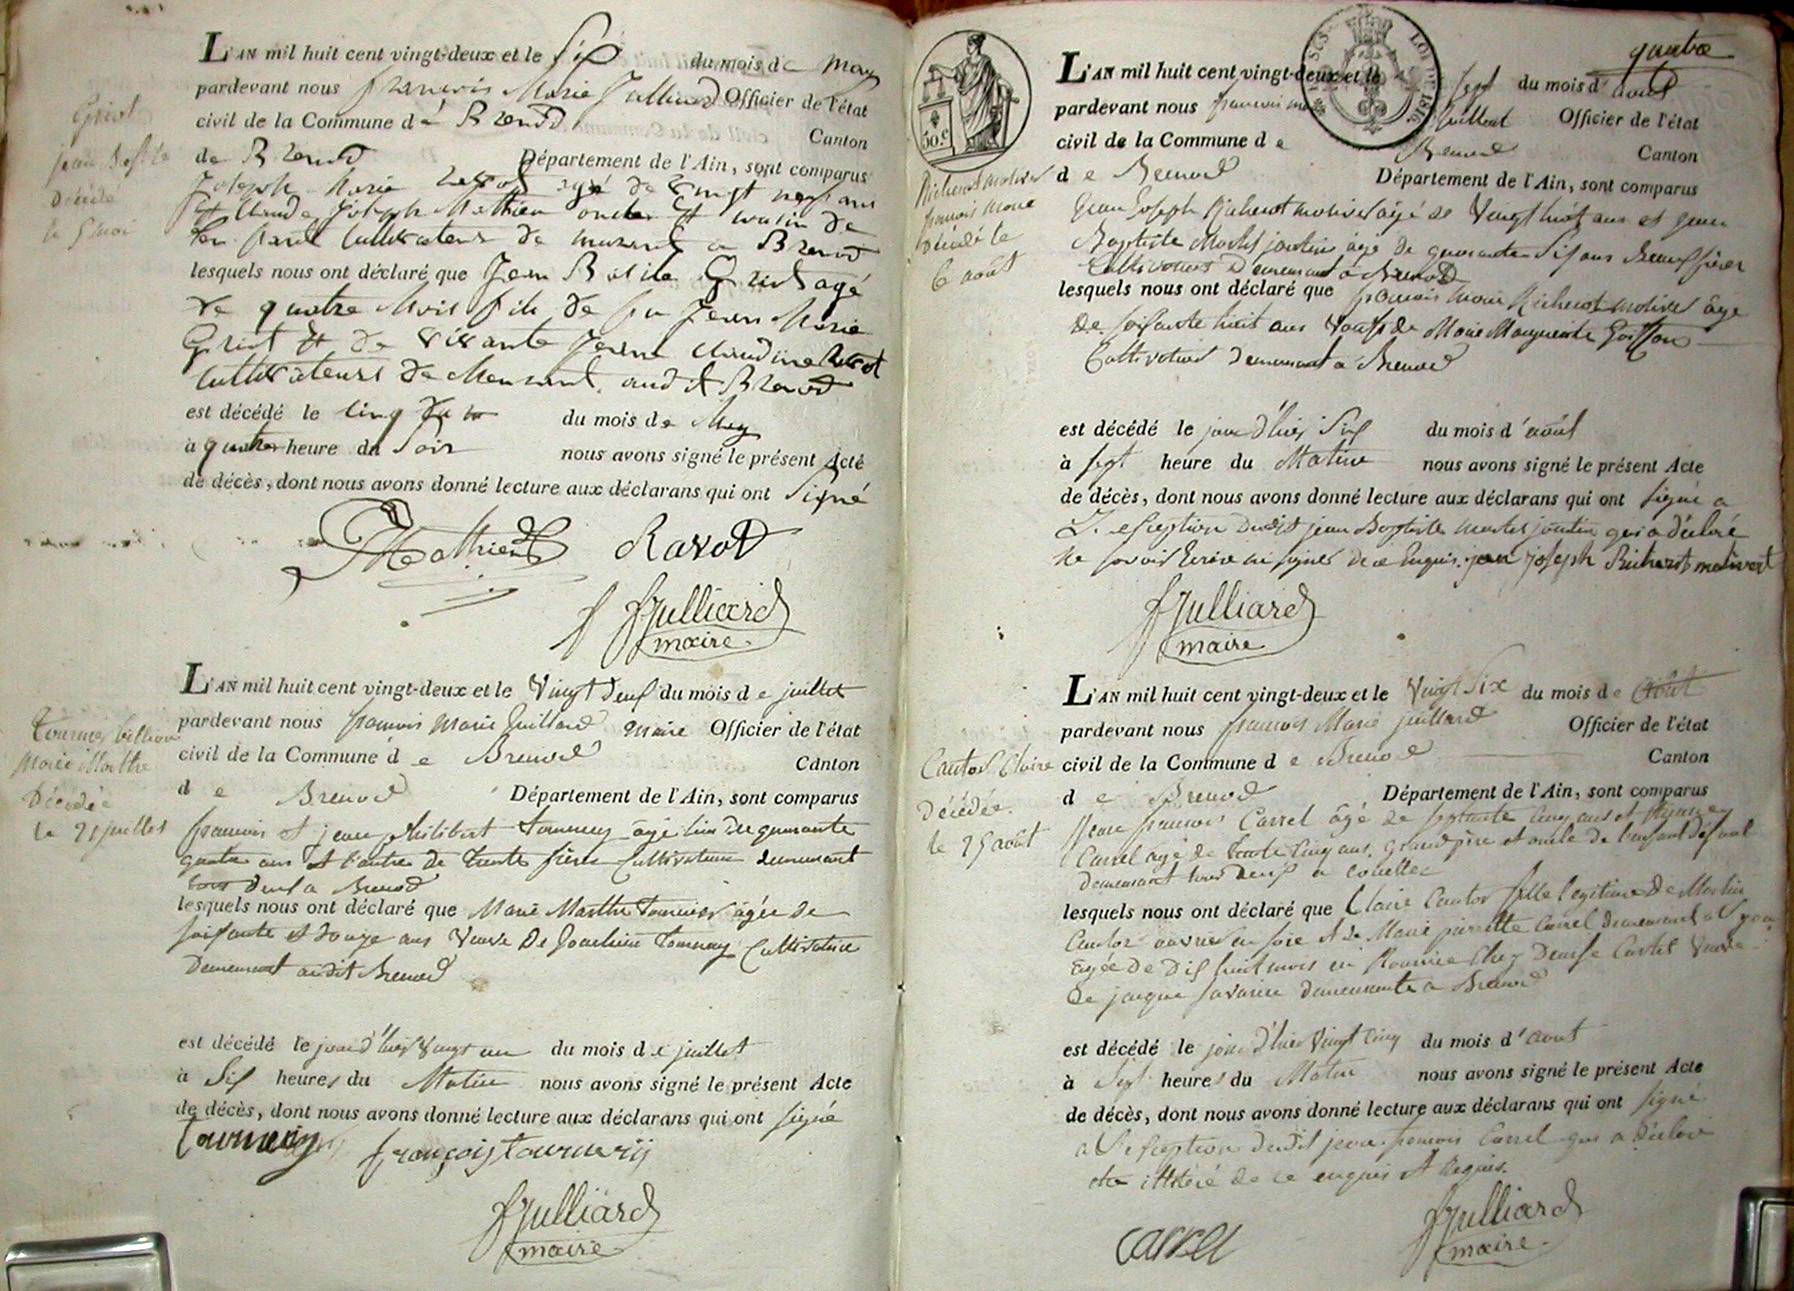 Griot
jean Basile
Décédé
le 5 mai
L'AN mil huit cent vingt-deux et le Six du mois de may
pardevant nous francois Marie Julliard Officier de l'état
civil de la Commune d é Brenod Canton
de Brenod Département de l'Ain, sont comparus
Joseph Marie Ravot agé de vingt neuf ans
et Claude Joseph Mathieu oncle et cousin de
cultivateurs de meurant a Brenod
lesquels nous ont déclaré que Jean Basile Griot agé
de quatre Mois fils de feu Jean Marie
Griot et de vivante Jeanne Claudine Ravot
cultivateurs de Meurant audit Brenod
est décédé le cinq du mois de May
à quatre heure du Soir nous avons signé le présent Acte
de décès, dont nous avons donné lecture aux déclarans qui ont Signé
Mathieu Ravot
fJulliard
maire
Tournier billion
Marie Marthe
Décédée
le 21 juillet
L'AN mil huit cent vingt-deux et le Vingt Deux du mois de juillet
pardevant nous francois Marie Juilliard maire Officier de l'état
civil de la Commune d e Brenod Canton
d e Brenod Département de l'Ain, sont comparus
francois et jean philibert Tournery âgé l'un de quarante
quatre ans et l'autre de trente frères Cultivateurs demeurant
tous Deux a Brenod
lesquels nous ont déclaré que Marie Marthe Tournier âgée de
soixante et douze ans Veuve De Joachim Tournery Cultivatrice
Demeurant audit Brenod
est décédé le jour d'hier Vingt un du mois de juillet
à Six heures du Matin nous avons signé le présent Acte
de décès, dont nous avons donné lecture aux déclarans qui ont signé
Tournery françois tournerÿ
fJulliard
maire
quatre
50.c
LOI DE 1816
Richerot molivert
francois marie
Décédé le
6 août
L'AN mil huit cent vingt-deux et le sept du mois d'août
pardevant nous francois ma Juilliard Officier de l'état
civil de la Commune d e Brenod Canton
d e Brenod Département de l'Ain, sont comparus
Jean Joseph Richerot molivert âgé de Vingt huit ans et jean
Baptiste Martel jantin âgé de quarante Six ans Beaux frères
Cultivateurs Demeurant à Brenod
lesquels nous ont déclaré que francois Marie Richerot molivert âgé
de soixante huit ans Veuf de Marie Marguerite
Cultivateur demeurant à Brenod
est décédé le jour d'hier Six du mois d'août
à sept heure du Matin nous avons signé le présent Acte
de décès, dont nous avons donné lecture aux déclarans qui ont signé a
L'exception dudit jean Baptiste martel jantin qui a déclaré
ne savoir Ecrire ni signer de ce Enquis. jean joseph Richerot molivert
fJulliard
maire
Cantor Claire
Décédée
le 25 août
L'AN mil huit cent vingt-deux et le Vingt Six du mois de Août
pardevant nous francois Marie juilliard Officier de l'état
civil de la Commune d e Brenod Canton
d e Brenod Département de l'Ain, sont comparus
Jean francois Carrel âgé de septante cinq ans et
Carrel agé de trente cinq ans, Grand père et oncle de l'enfant défunt
Demeurant tous Deux a
lesquels nous ont déclaré que Claire Cantor fille légitime De Martin
Cantor ouvrier en soie et de Marie pierrette Carrel demeurant a Lyon
âgée de Dix huit mois en Nourrice chez Denise Carrel Veuve
de jacque savarin demeurante a Brenod
est décédé le jour d'hier Vingt Cinq du mois d'août
à Sept heures du Matin nous avons signé le présent Acte
de décès, dont nous avons donné lecture aux déclarans qui ont signé
a L'exception dudit jean francois Carrel qui a déclaré
être illitéré de ce enquis et Requis.
carrel fJulliard
maire